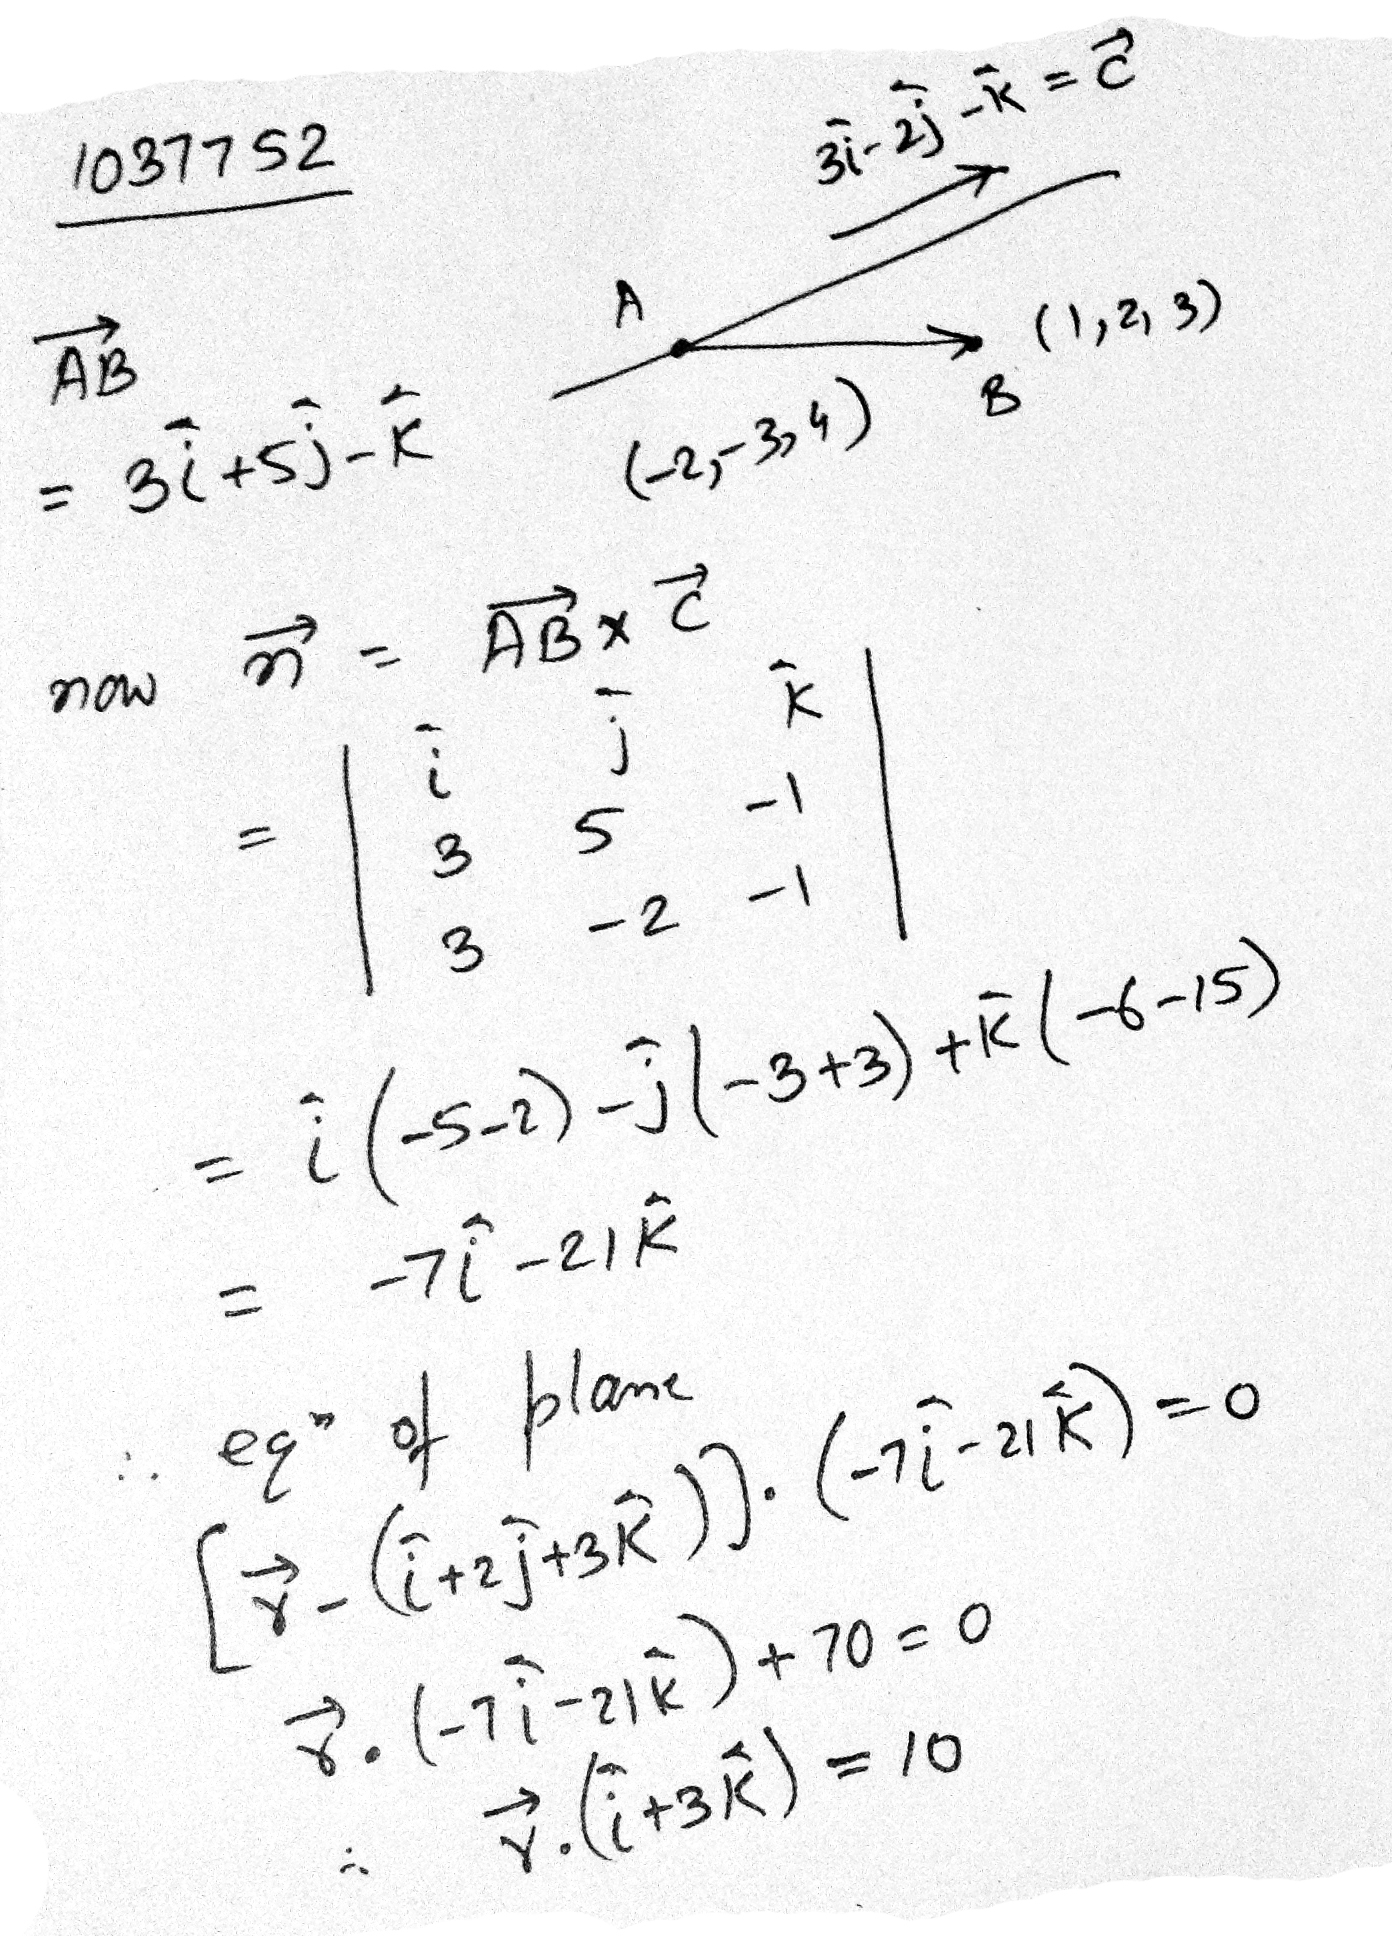 1037752
3î-2ĵ-k̂ = c⃗
A
B (1, 2, 3)
(-2, -3, 4)
AB⃗
= 3î+5ĵ-k̂
now n⃗ = AB⃗ × c⃗
= | î ĵ k̂ |
3 5 -1
3 -2 -1
= î(-5-2) -ĵ(-3+3) +k̂(-6-15)
= -7î -21k̂
∴ eqⁿ of plane
[r⃗-(î+2ĵ+3k̂)].(-7î-21k̂) = 0
r⃗.(-7î-21k̂)+70 = 0
∴ r⃗.(î+3k̂) = 10